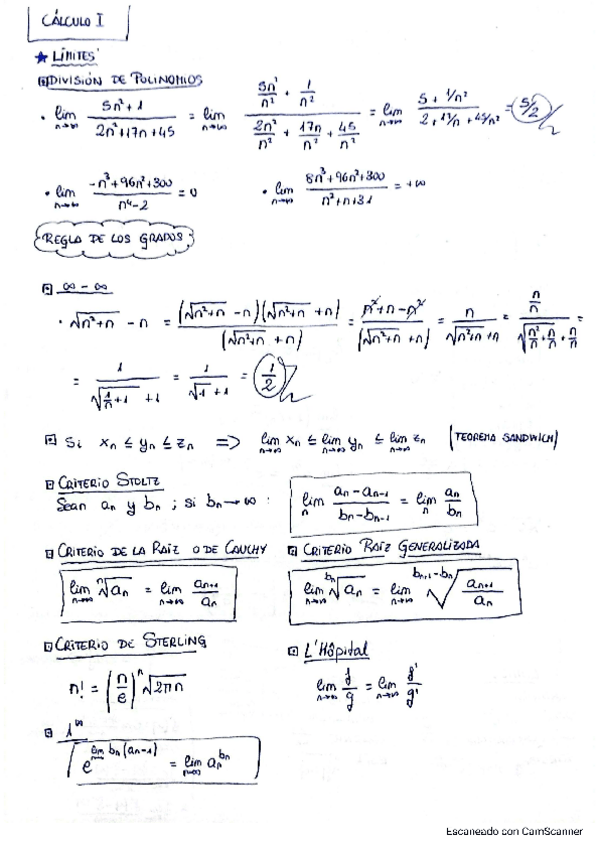 CÁLCULO I
★ LÍMITES
DIVISIÓN DE POLINOMIOS
• lim n→∞ (5n²+1)/(2n²+17n+45) = lim n→∞ (5n²/n² + 1/n²)/(2n²/n² + 17n/n² + 45/n²) = lim n→∞ (5 + 1/n²)/(2 + 17/n + 45/n²) = 5/2
• lim n→∞ (-n³+96n²+300)/(n⁴-2) = 0 • lim n→∞ (8n³+96n²+300)/(n²+n+31) = +∞
REGLA DE LOS GRADOS
∞ - ∞
• √(n²+n) - n = (√(n²+n) - n)(√(n²+n) + n)/(√(n²+n) + n) = (n²+n-n²)/(√(n²+n) + n) = n/(√(n²+n) + n) = (n/n)/(√(n²/n + n/n) + n/n) =
= 1/(√(1/n + 1) + 1) = 1/(√1 + 1) = 1/2
Si xn ≤ yn ≤ zn => lim n→∞ xn ≤ lim n→∞ yn ≤ lim n→∞ zn (TEOREMA SANDWICH)
CRITERIO STOLTZ
Sean an y bn ; si bn → ∞ : lim n (an - an-1)/(bn - bn-1) = lim n an/bn
CRITERIO DE LA RAIZ O DE CAUCHY CRITERIO RAÍZ GENERALIZADA
lim n→∞ ⁿ√an = lim n→∞ an+1/an lim n→∞ bn√an = lim n→∞ bn+1-bn√(an+1/an)
CRITERIO DE STERLING L'Hôpital
n! = (n/e)ⁿ √2πn lim n→∞ f/g = lim n→∞ f'/g'
1^∞
e^(lim n→∞ bn(an-1)) = lim n→∞ an^bn
Escaneado con CamScanner